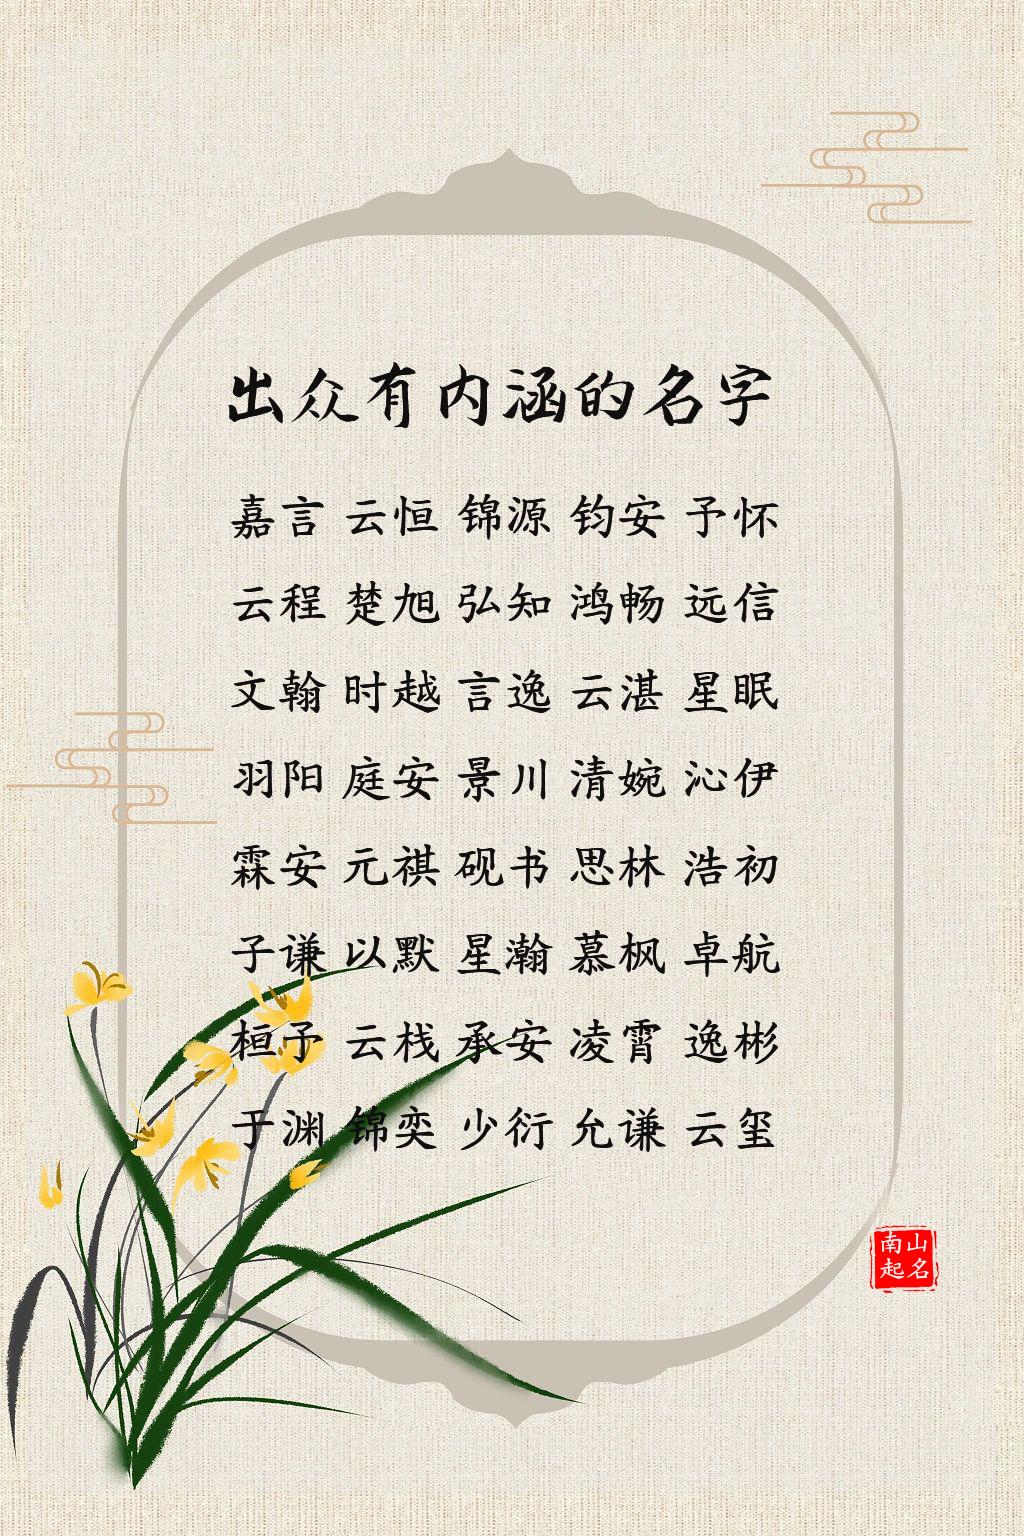 出众有内涵的名字
嘉言 云恒 锦源 钧安 予怀
云程 楚旭 弘知 鸿畅 远信
文翰 时越 言逸 云湛 星眠
羽阳 庭安 景川 清婉 沁伊
霖安 元祺 砚书 思林 浩初
子谦 以默 星瀚 慕枫 卓航
桓予 云栈 承安 凌霄 逸彬
于渊 锦奕 少衍 允谦 云玺
南山
起名